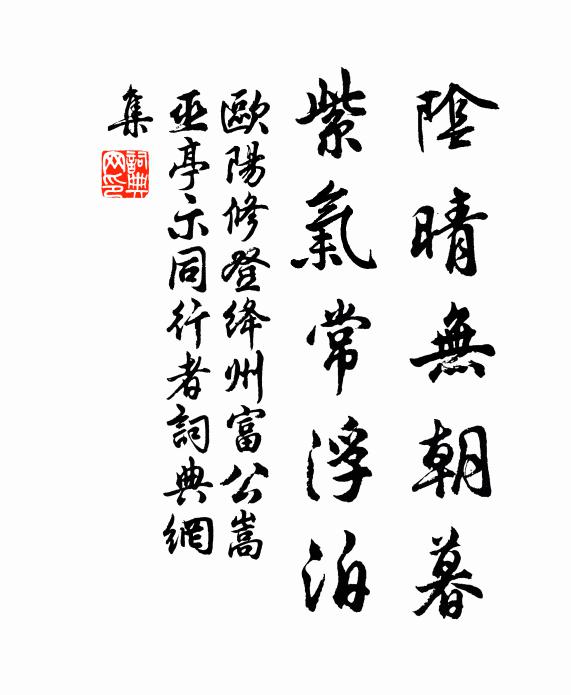 陰晴無朝暮
紫氣常浮泊
歐陽修登绛州富公嵩
巫亭示同行者詞典網
集
詞典网印